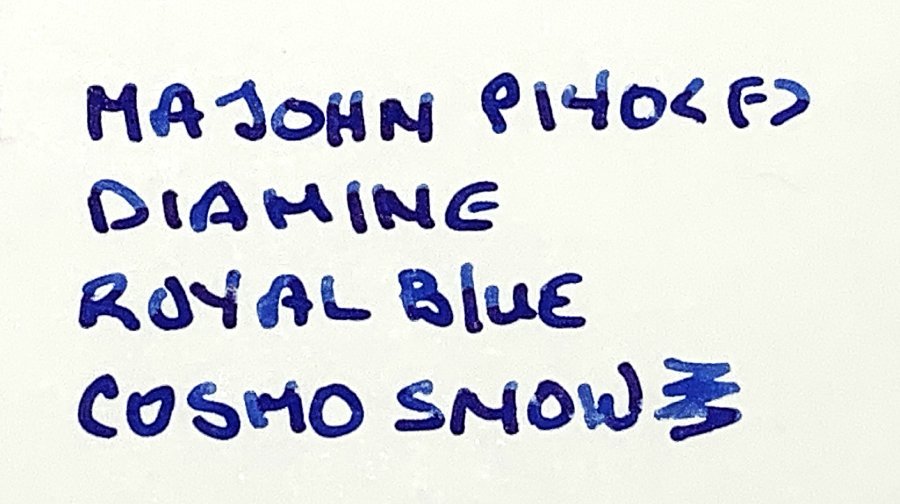 MAJOHN P140 <F>
DIAMINE
ROYAL BLUE
COSMO SNOW